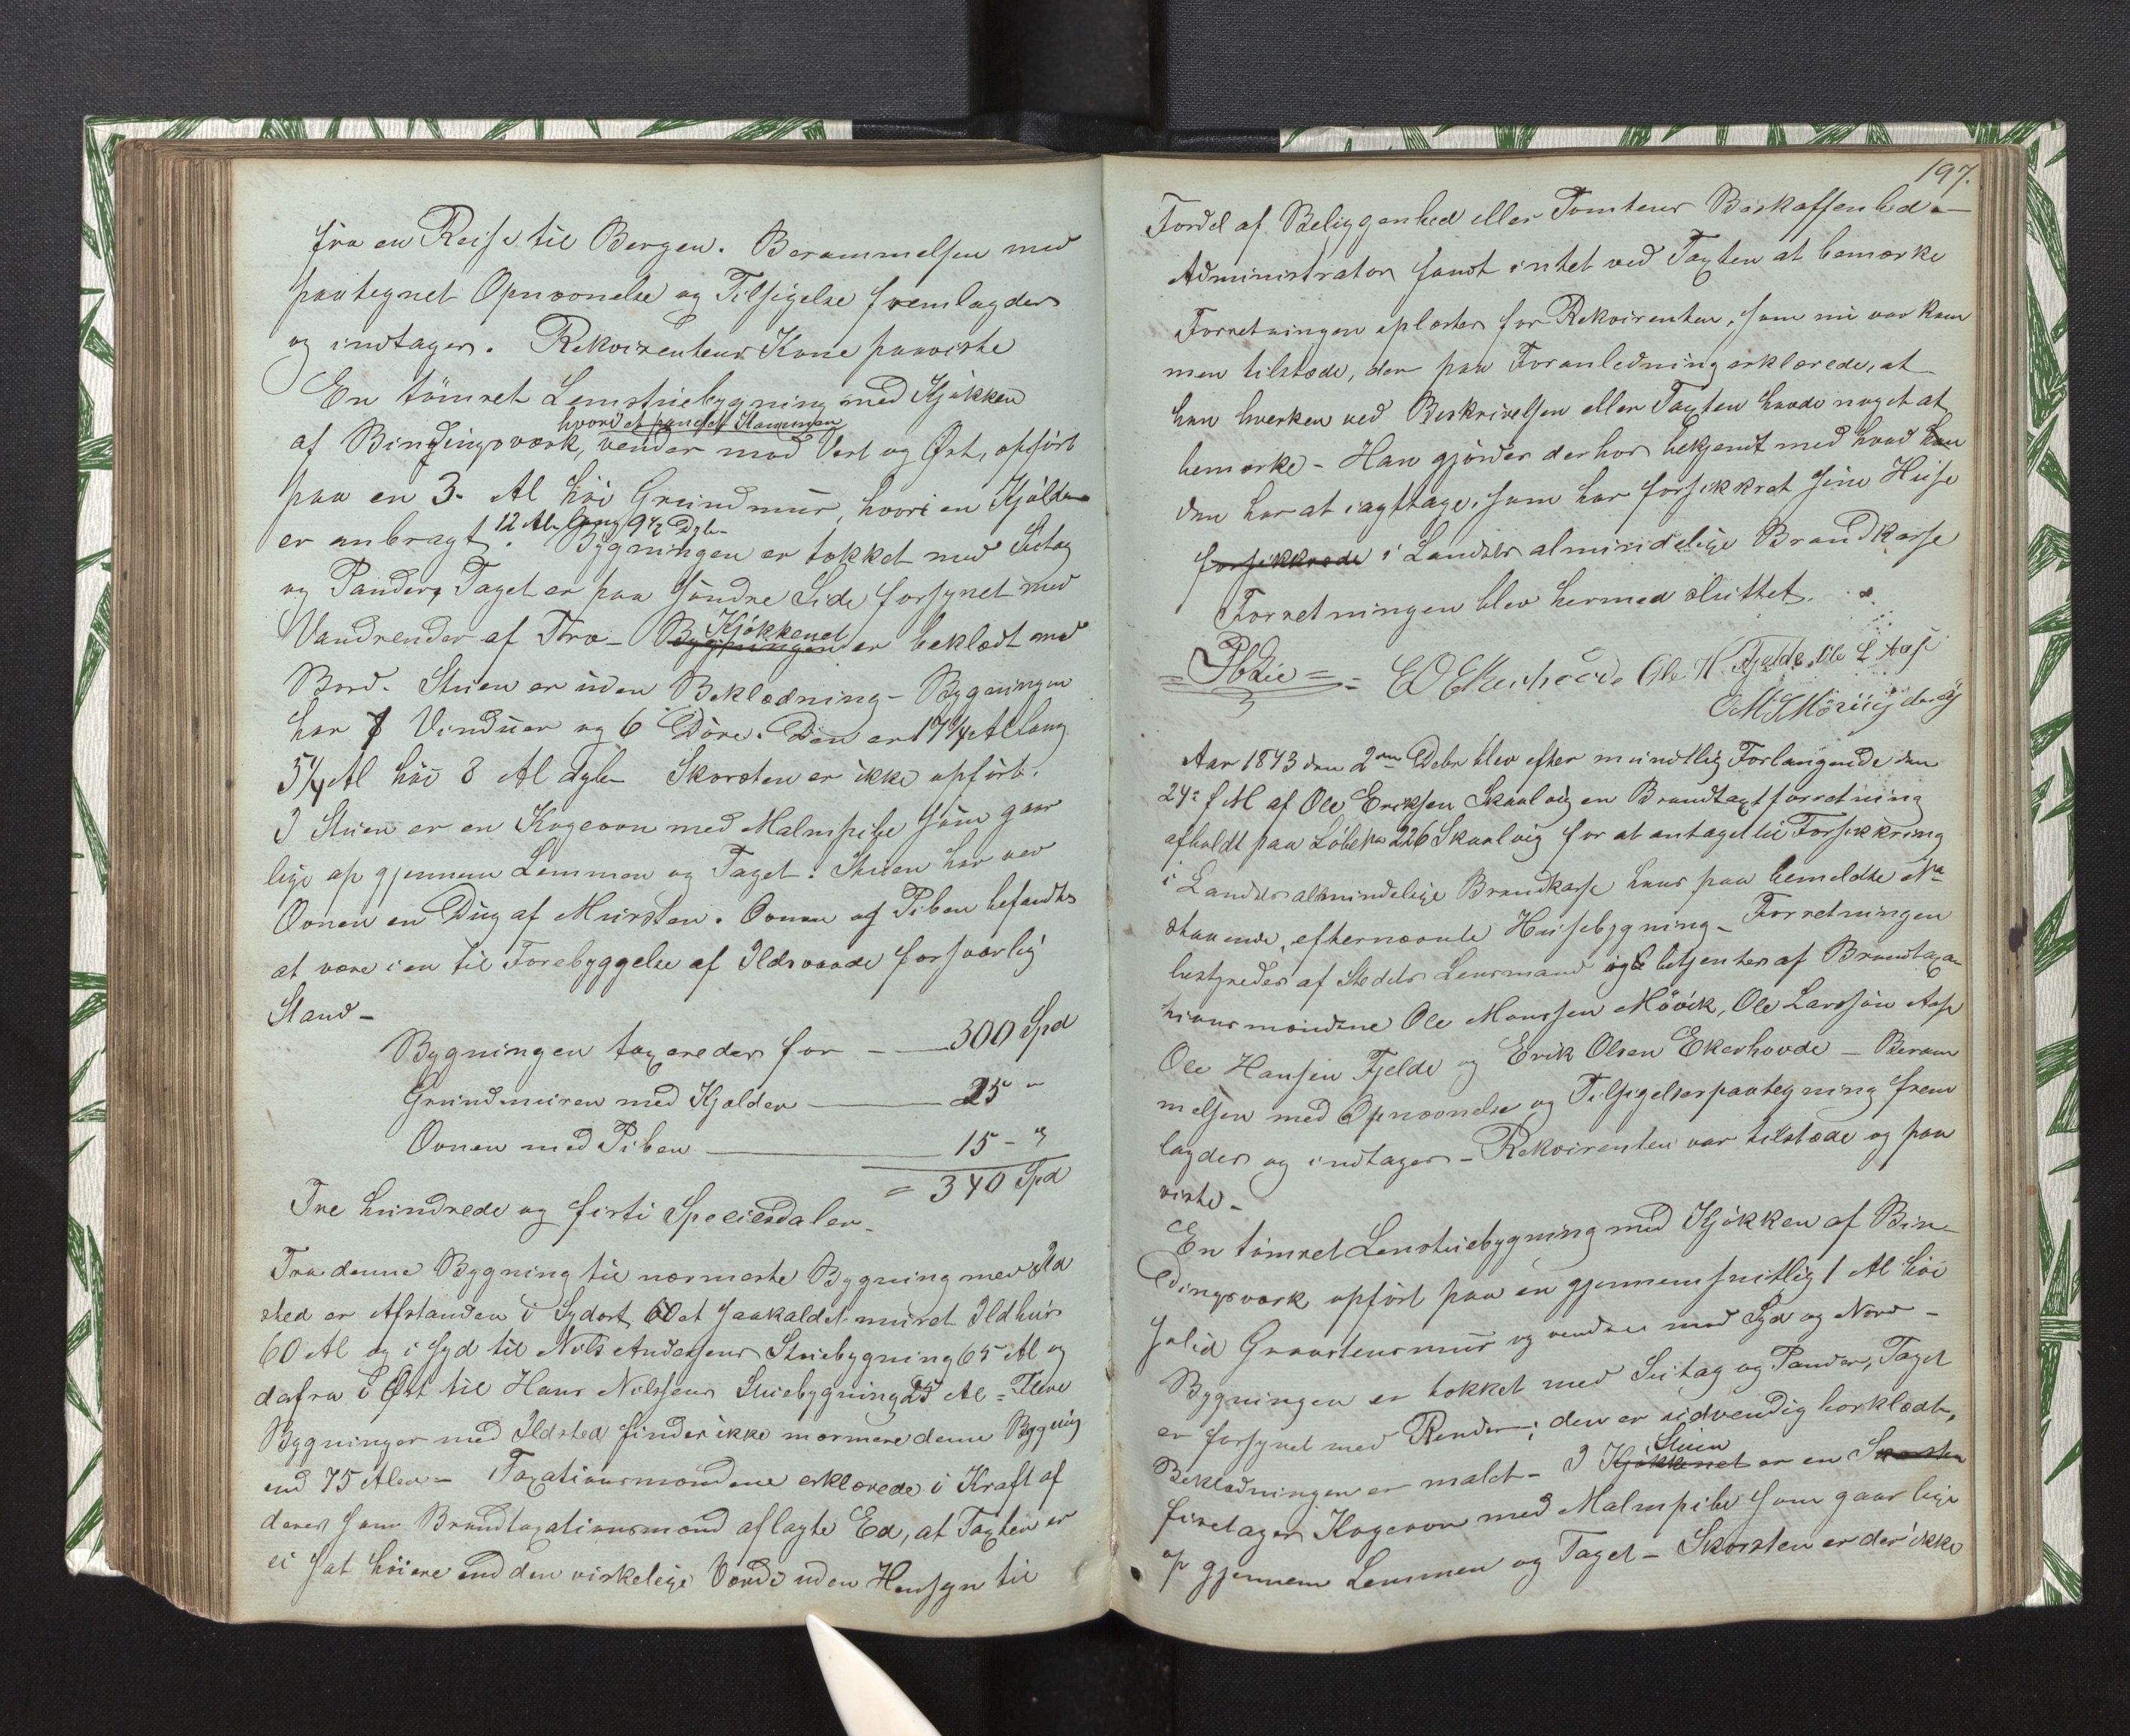 fra en Reise til Bergen. Berammelsen med
paategnet Opnævnelse og Tilsigelse fremlagdes
og indtages. Rekvirentens Kone paaviste
En tömret Lemstuebygning med Kjøkken
hvori et Kammer
af Bindingsværk, vender mod Vest og Øst, opført
paa en 3. Al høi Grundmur, hvori en Kjelder
12 Al lang 9½ Dyb
er anbragt. Bygningen er tækket med Sutag
og Pander, Taget er paa søndre Side forsynet med
Vandrender af Træ - Bygningen er beklædt med
Kjøkkenet
Bord. Stuen er uden Beklædning - Bygningen
har 7 Vinduer og 6 Döre. Den er 17¼ Al lang
5¼ Al høi 8 Al dyb Skorsten er ikke opført.
I Stuen er en Kogeovn med Malmpibe som gaar
lige op gjennem Lemmen og Taget. Stuen har ved
Ovnen en Dug af Mursten. Ovnen og Piben befandtes
at være i en til Forebyggelse af Ildsvaade forsvarlig
Stand -
Bygningen taxeredes for - - 300 Spd
Grundmuren med Kjelder - 25 "
Ovnen med Piben - 15 - "
= 340 Spd
Tre hundrede og firti Speciesdaler -
Fra denne Bygning til nærmeste Bygning med Ild
sted er Afstanden i Sydost et saakaldet muret Ildhus
60 Al og i Syd til Nils Andersens Stuebygning 65 Al og
derfra i Øst til Hans Nilssens Stuebygning 25 Al = Flere
Bygninger med Ildsted findes ikke nærmere denne Bygning
end 75 Alen - Taxationsmændene erklærede i Kraft af
deres som Brandtaxationsmænd aflagte Ed, at Taxten er
ei sat høiere end den virkelige Værdi uden Hensyn til
197.
Fordel af Beliggenhed eller Tomtens Beskaffenhed -
Administrator fandt intet ved Taxten at bemærke
Forretningen oplæstes for Rekvirenten, som nu var kom
men tilstæde, der paa Foranledning erklærede, at
han hverken ved Beskrivelsen eller Taxten havde noget at
bemærke - Han gjordes derhos bekjendt med hvad
den har at iagttage, som har forsikkret sine Huse
forsikkrede i Landets almindelige Brandkasse
Forretningen blev hermed sluttet.
E O Ekerhovde Ole H. Fjelde Ole L Aase
Aar 1873 den 2den Debr blev efter mundtlig Forlangende den
24: f M af Ole Eriksen Skaalvig en Brandtaxtforretning
afholdt paa Löbe No 226 Skaalvig for at antaget til Forsikkring
i Landets almindelige Brandkasse hans paa bemeldte No
staaende, efternævnte Husebygning - Forretningen
bestyredes af Stedets Lensmand og betjentes af Brandtaxa
tionsmændene Ole Monssen Mövik, Ole Larssen Aase
Ole Hansen Fjelde og Erik Olsen Ekerhovde - Beram
melsen med Opnævnelse og Tilsigelsespaategning frem
lagdes og indtages - Rekvirenten var tilstæde og paa
viste -
En tömret Lemstuebygning med Kjøkken af Bin-
dingsværk opført paa en gjennemsnitlig 1 Al høi
solid Graastensmur og vender mod Syd og Nord -
Bygningen er tækket med Sutag og Pander, Taget
er forsynet med Render; den er udvendig bordklædt,
Stuen
Beklædningen er malet - I Kjøkkenet er en Skorsten
firetages Kogeovn med Malmpibe som gaar lige
op gjennem Lemmen og Taget - Skorsten er der ikke